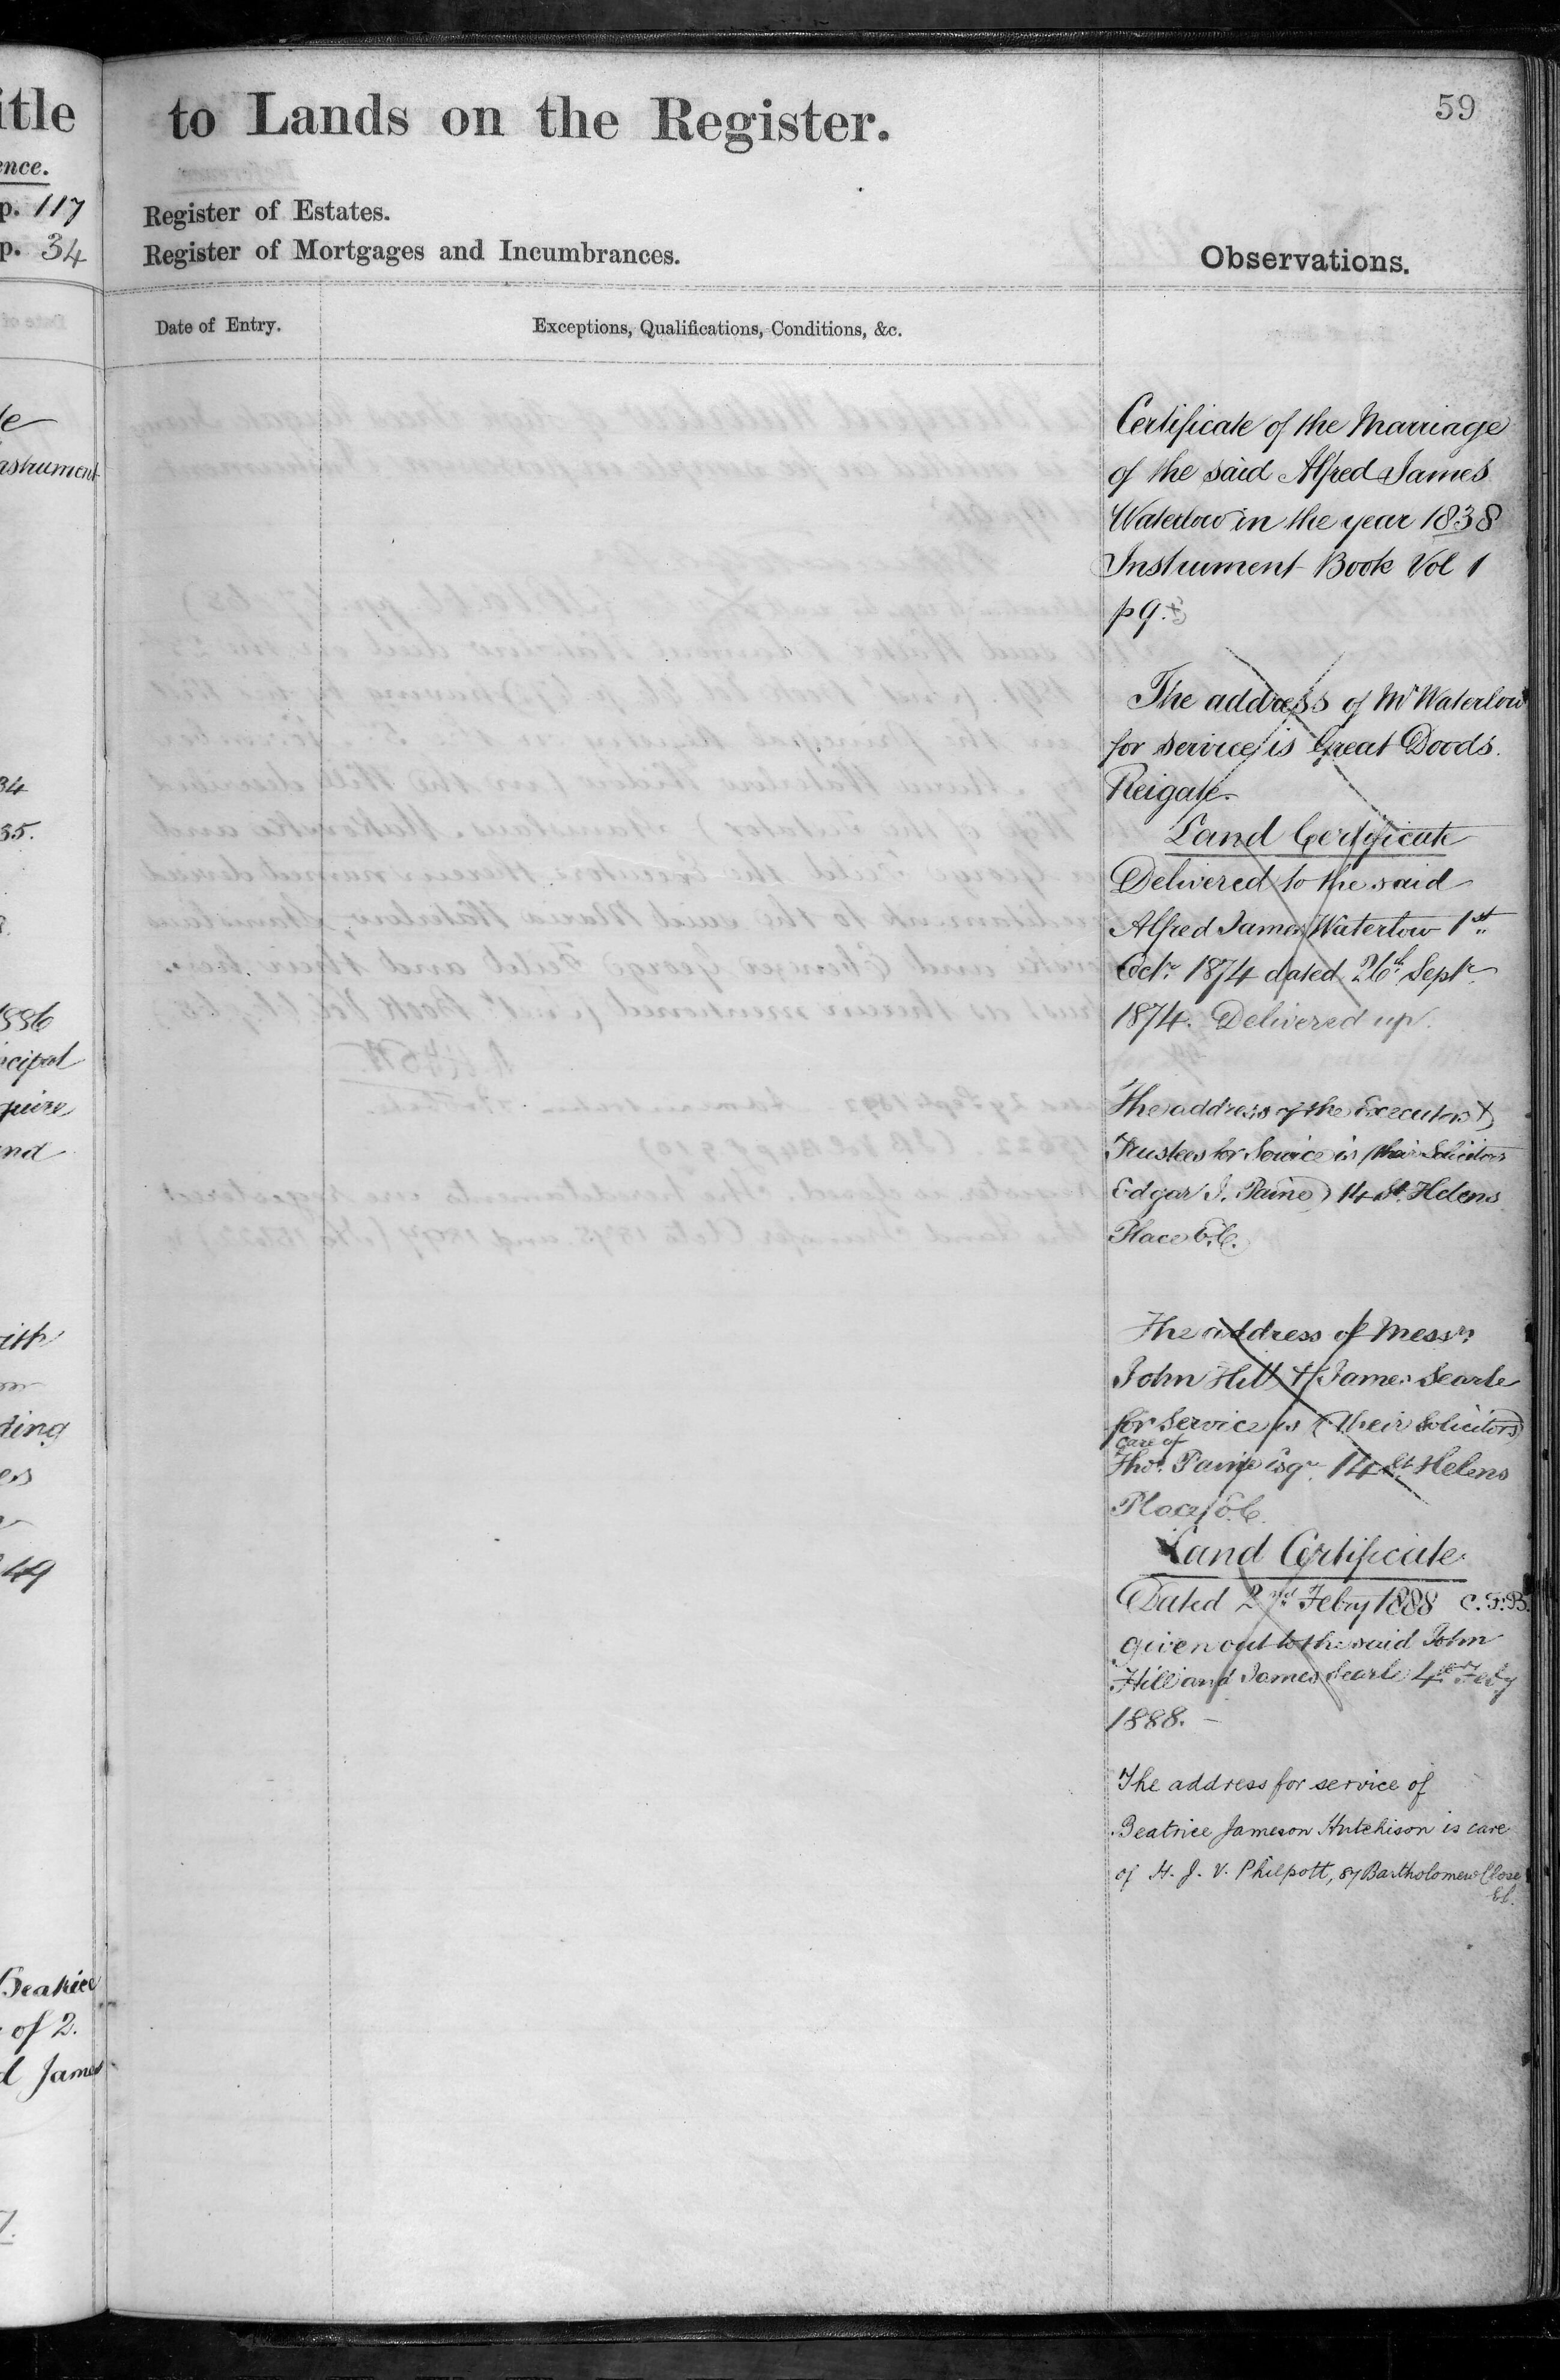 to Lands on the Register.
59
Register of Estates.
Register of Mortgages and Incumbrances.
Observations.
Date of Entry.
Exceptions, Qualifications, Conditions, &c.
Certificate of the Marriage
of the said Alfred James
Waterlow in the year 1838
Instrument Book Vol 1
p 9.
The address of Mr Waterlow
for service is Great Doods.
Reigate.
Land Certificate
Delivered to the said
Alfred James Waterlow 1st
Octr. 1874 dated 26th Septr
1874. Delivered up.
The address of the Executors &
Trustees for Service is their Solicitors
Edgar J. Paine 14 St. Helens
Place E.C.
The address of Messrs
John Hill & James Searle
for service is (their Solicitors)
care of
Thos. Paine Esqr. 14 St Helens
Place E.C.
Land Certificate
Dated 2nd Febry 1888 C.F.B.
given out to the said John
Hill and James Searle 4th Feby
1888. —
The address for service of
Beatrice Jameson Hutchison is care
of H. J. V. Philpott, 87 Bartholomew Close
E.C.
itle
ence.
p. 117
p. 34
le
nstrument
34
35.
1886
ncipal
quire
and
ith
ding
es
49
Beatrice
of 2.
d James